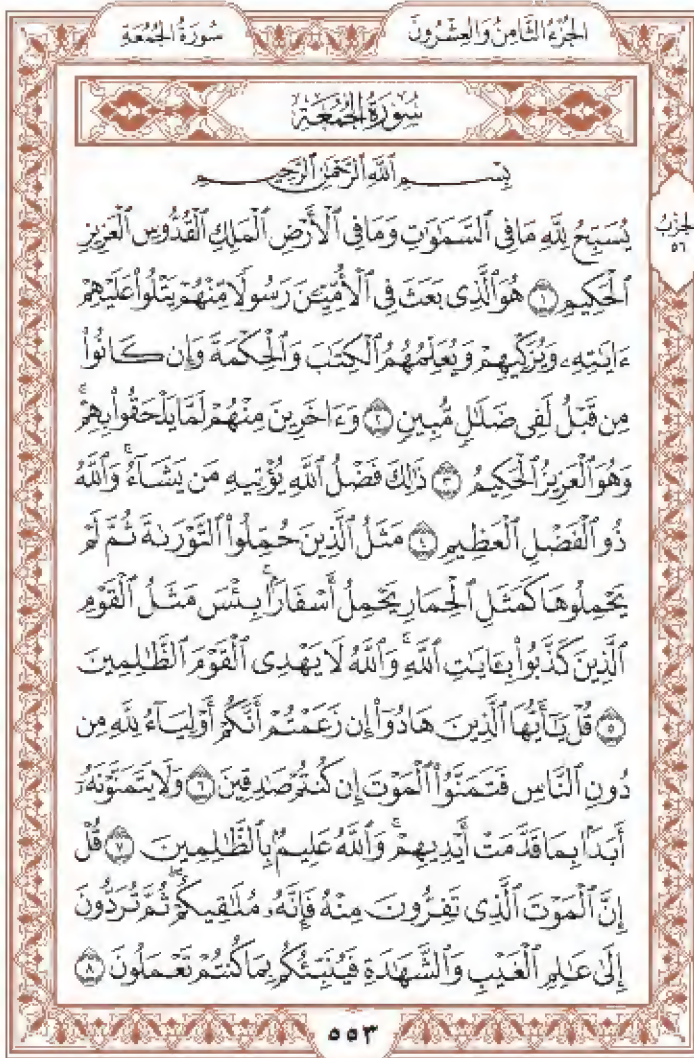 الجُزْءُ الثَّامِنُ وَالعِشْرُونَ
سُورَةُ الجُمُعَةِ
سُورَةُ الجُمُعَةِ
بِسْمِ ٱللَّهِ ٱلرَّحْمَٰنِ ٱلرَّحِيمِ
يُسَبِّحُ لِلَّهِ مَا فِي ٱلسَّمَٰوَٰتِ وَمَا فِي ٱلْأَرْضِ ٱلْمَلِكِ ٱلْقُدُّوسِ ٱلْعَزِيزِ
ٱلْحَكِيمِ ١ هُوَ ٱلَّذِي بَعَثَ فِي ٱلْأُمِّيِّۦنَ رَسُولًا مِّنْهُمْ يَتْلُوا۟ عَلَيْهِمْ
ءَايَٰتِهِۦ وَيُزَكِّيهِمْ وَيُعَلِّمُهُمُ ٱلْكِتَٰبَ وَٱلْحِكْمَةَ وَإِن كَانُوا۟
مِن قَبْلُ لَفِي ضَلَٰلٍ مُّبِينٍ ٢ وَءَاخَرِينَ مِنْهُمْ لَمَّا يَلْحَقُوا۟ بِهِمْ ۚ
وَهُوَ ٱلْعَزِيزُ ٱلْحَكِيمُ ٣ ذَٰلِكَ فَضْلُ ٱللَّهِ يُؤْتِيهِ مَن يَشَآءُ ۚ وَٱللَّهُ
ذُو ٱلْفَضْلِ ٱلْعَظِيمِ ٤ مَثَلُ ٱلَّذِينَ حُمِّلُوا۟ ٱلتَّوْرَىٰةَ ثُمَّ لَمْ
يَحْمِلُوهَا كَمَثَلِ ٱلْحِمَارِ يَحْمِلُ أَسْفَارًۢا ۚ بِئْسَ مَثَلُ ٱلْقَوْمِ
ٱلَّذِينَ كَذَّبُوا۟ بِـَٔايَٰتِ ٱللَّهِ ۚ وَٱللَّهُ لَا يَهْدِي ٱلْقَوْمَ ٱلظَّٰلِمِينَ
٥ قُلْ يَٰٓأَيُّهَا ٱلَّذِينَ هَادُوٓا۟ إِن زَعَمْتُمْ أَنَّكُمْ أَوْلِيَآءُ لِلَّهِ مِن
دُونِ ٱلنَّاسِ فَتَمَنَّوُا۟ ٱلْمَوْتَ إِن كُنتُمْ صَٰدِقِينَ ٦ وَلَا يَتَمَنَّوْنَهُۥٓ
أَبَدًۢا بِمَا قَدَّمَتْ أَيْدِيهِمْ ۚ وَٱللَّهُ عَلِيمٌۢ بِٱلظَّٰلِمِينَ ٧ قُلْ
إِنَّ ٱلْمَوْتَ ٱلَّذِي تَفِرُّونَ مِنْهُ فَإِنَّهُۥ مُلَٰقِيكُمْ ۖ ثُمَّ تُرَدُّونَ
إِلَىٰ عَٰلِمِ ٱلْغَيْبِ وَٱلشَّهَٰدَةِ فَيُنَبِّئُكُم بِمَا كُنتُمْ تَعْمَلُونَ ٨
الحِزْبُ
٥٦
٥٥٣